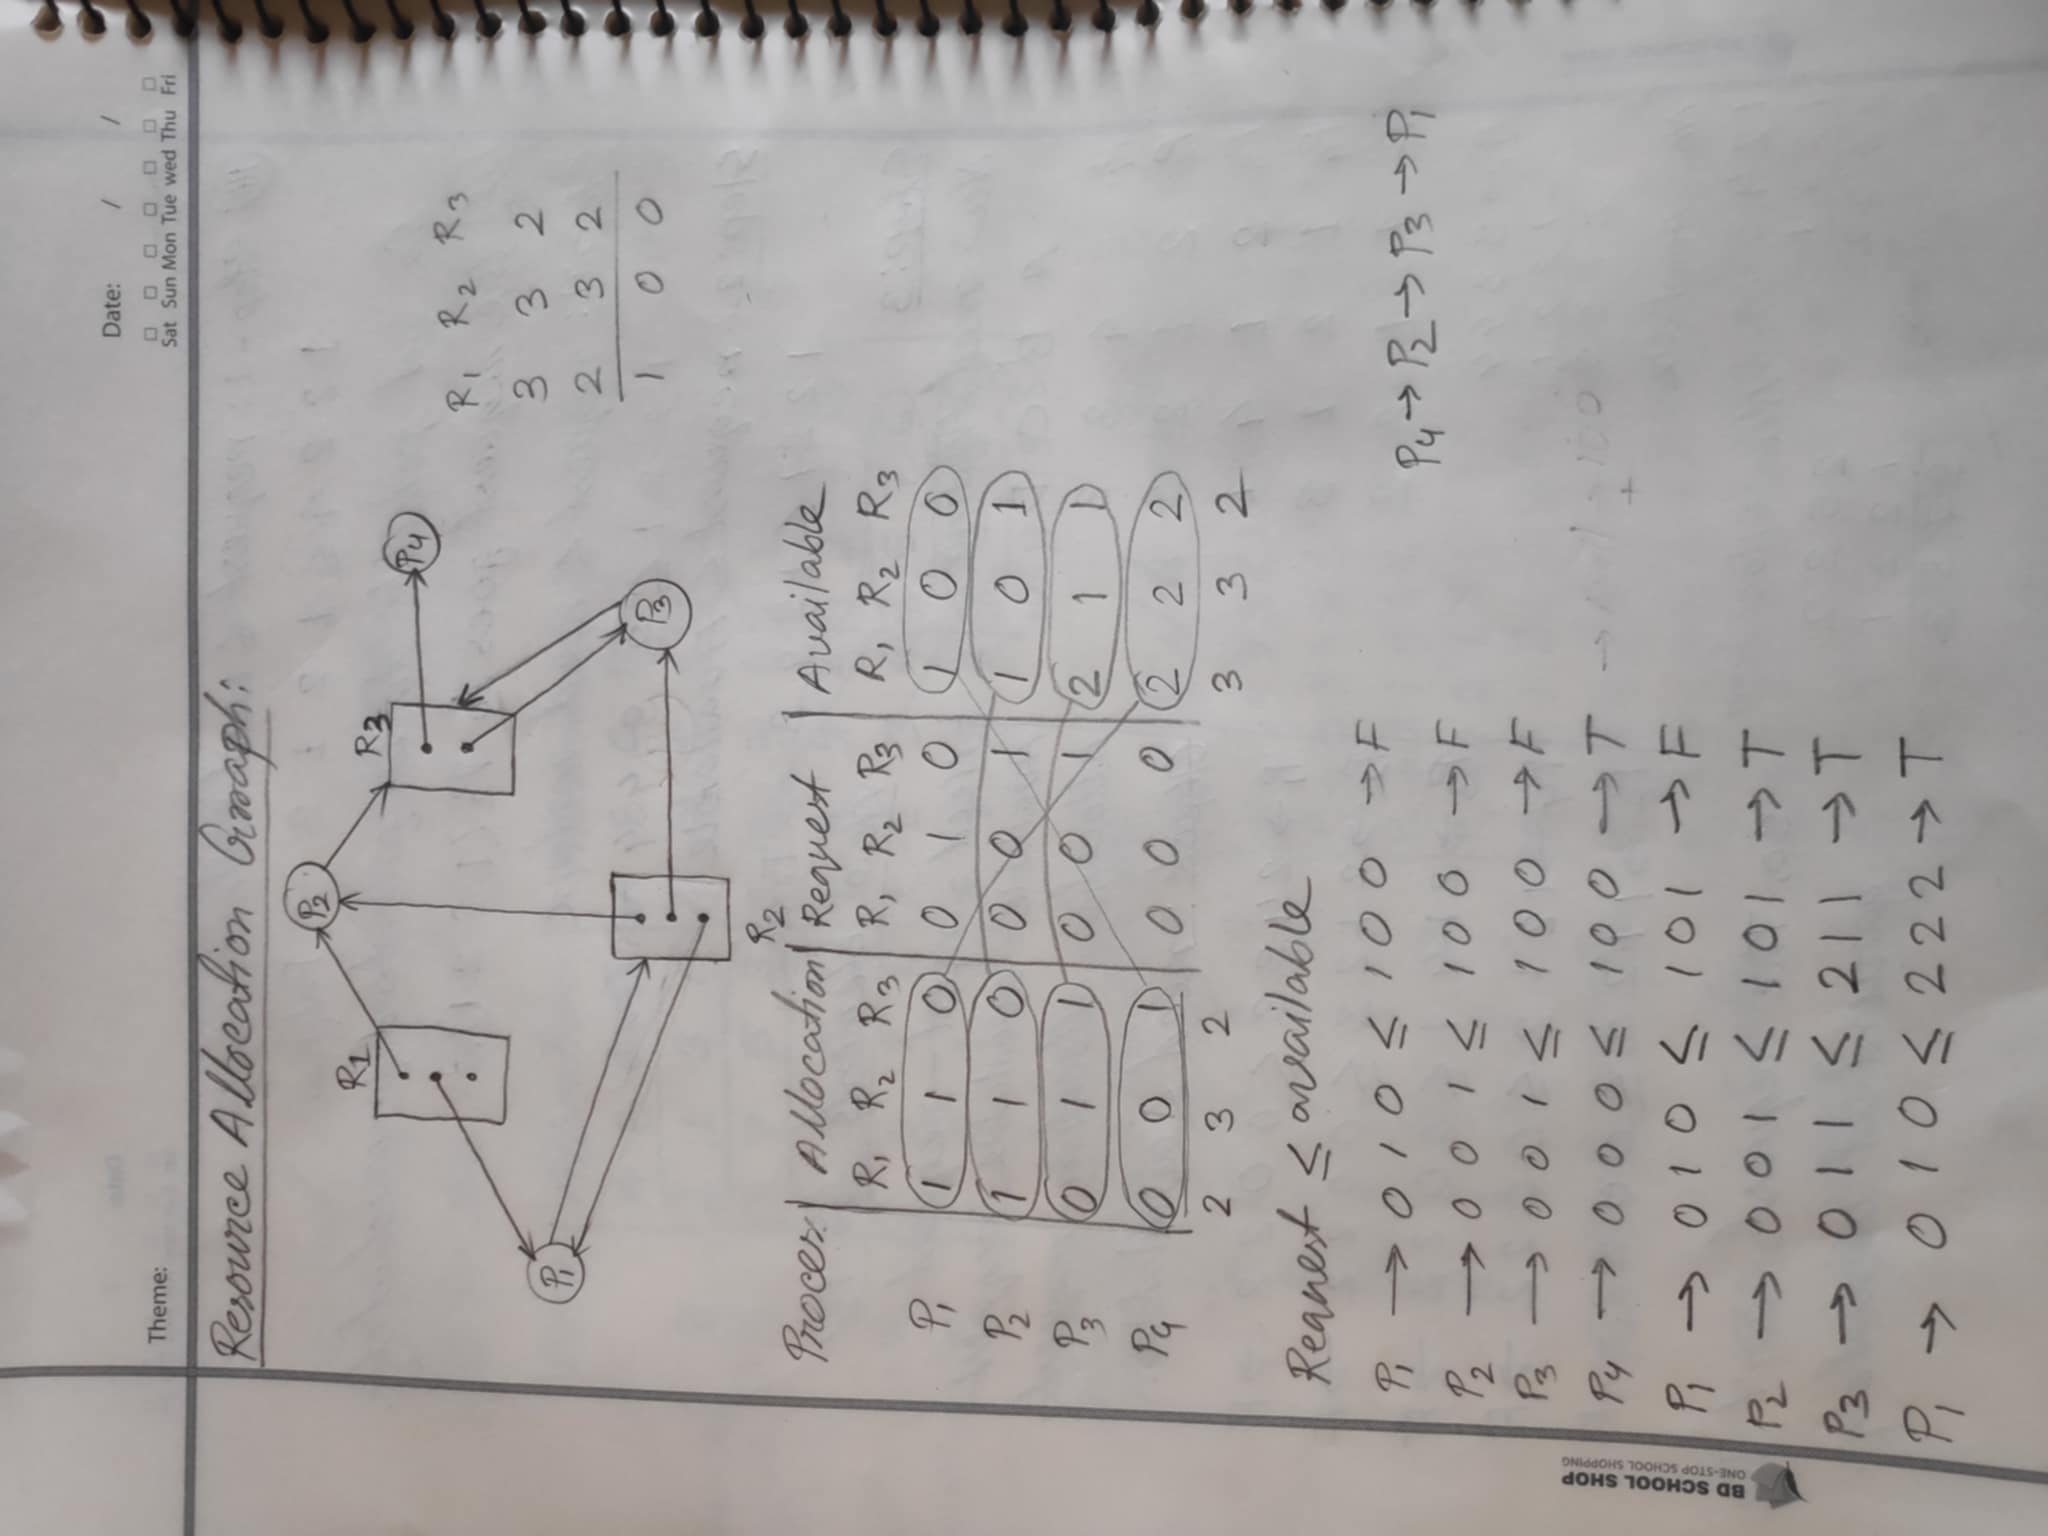 Date: / /
Theme:
Sat Sun Mon Tue wed Thu Fri
Resource Allocation Graph:
P2
R1
R3
P4
P1
P3
R2
R1 R2 R3
3 3 2
2 3 2
1 0 0
Proces. Allocation Request Available
R1 R2 R3 R1 R2 R3 R1 R2 R3
P1 1 1 0 0 1 0 1 0 0
P2 1 1 0 0 0 1 1 0 1
P3 0 1 1 0 0 1 2 1 1
P4 0 0 1 0 0 0 2 2 2
2 3 2 3 3 2
Request ≤ available
P1 → 0 1 0 ≤ 1 0 0 → F
P4 → P2 → P3 → P1
P2 → 0 0 1 ≤ 1 0 0 → F
P3 → 0 0 1 ≤ 1 0 0 → F
P4 → 0 0 0 ≤ 1 0 0 → T
P1 → 0 1 0 ≤ 1 0 1 → F
P2 → 0 0 1 ≤ 1 0 1 → T
P3 → 0 1 1 ≤ 2 1 1 → T
P1 → 0 1 0 ≤ 2 2 2 → T
BD SCHOOL SHOP
ONE-STOP SCHOOL SHOPPING